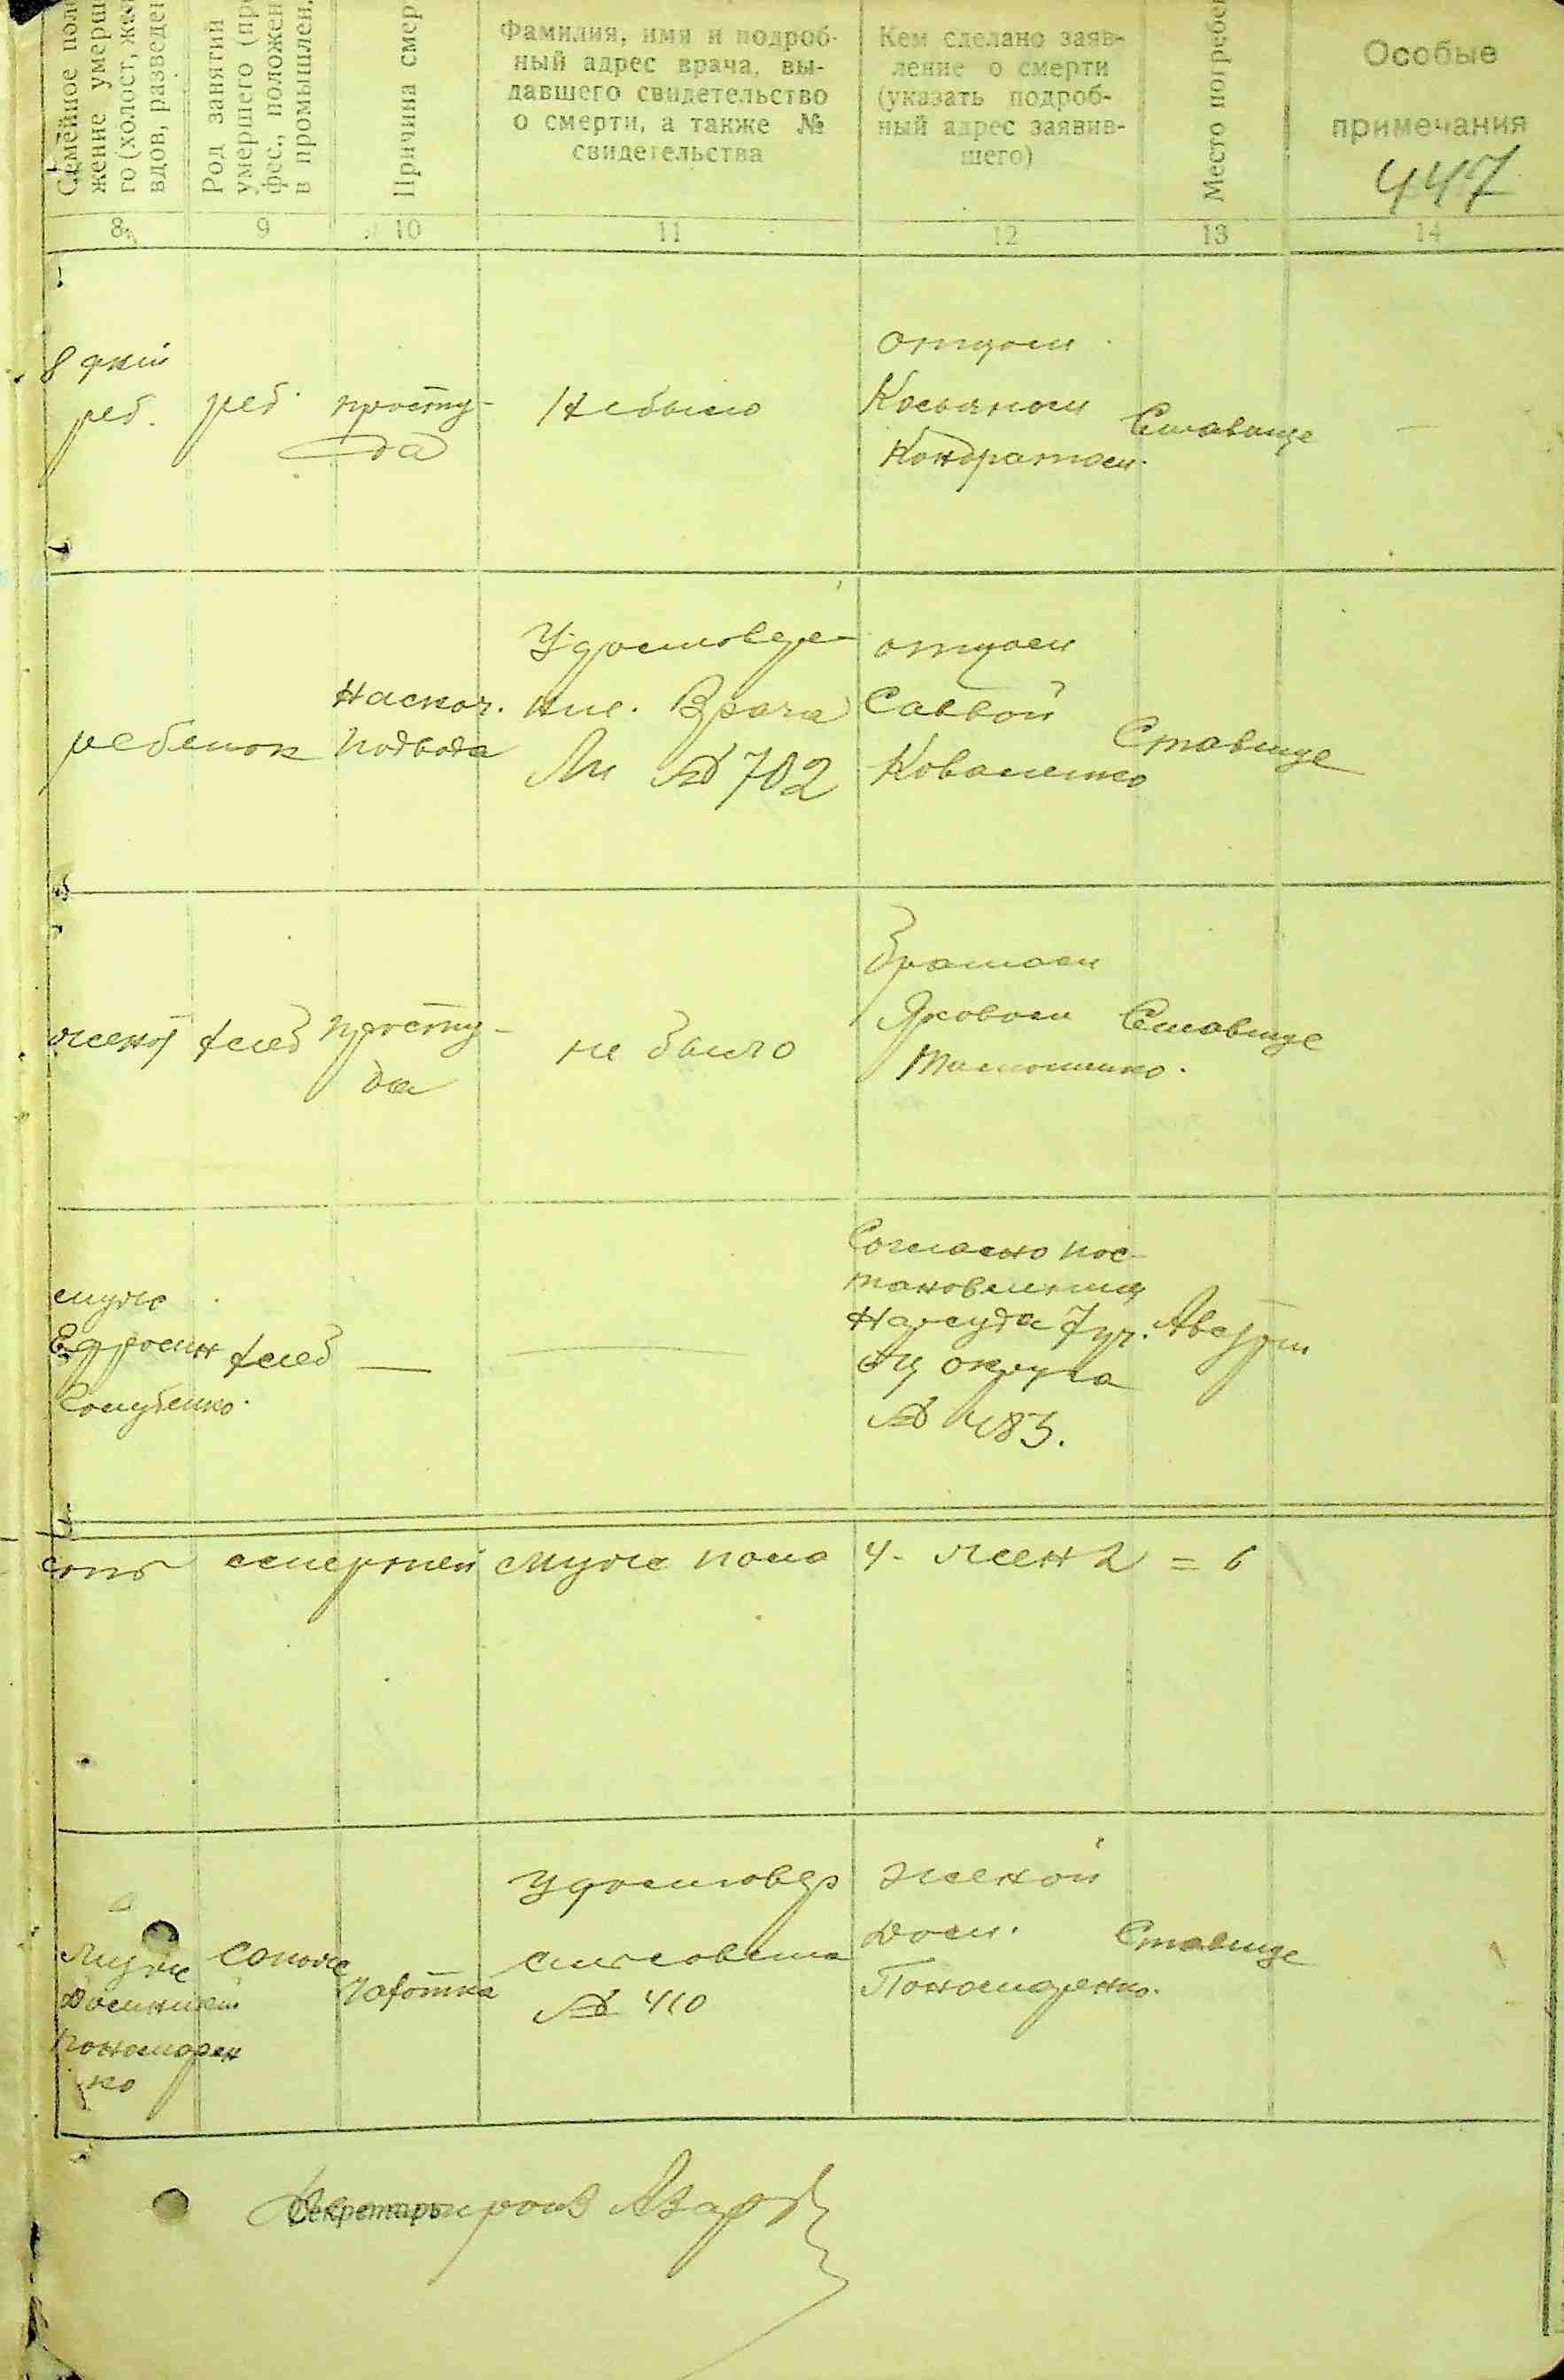 Семейное поло
жение умерш
го (холост, жен
вдов, разведен
Род занятий
умершего (пр
фес., положен
в промышлен.
Причина смер
Фамилия, имя и подроб-
ный адрес врача, вы-
давшего свидетельство
о смерти, а также №
свидетельства
Кем сделано заяв-
ление о смерти
(указать подроб-
ный адрес заявив-
шего)
Место погребен
Особые
примечания
447
8 9 10 11 12 13 14
8 дней
реб.
реб.
просту-
да
Не было
отцом
Косьяном
Кондратом.
Ставище
—
ребенок
Наскоч.
подвода
Удостовере-
ние. Врача
№ 702
отцом
Саввой
Коваленко
Ставище
женат
хлеб
просту-
да
не было
братом
Яковом
Ставище
муж
Ефросин
Голубенко.
хлеб
—
Согласно пос-
тановления
Нарсуда 7 уч.
округа
№ 483.
Австри
умершей муж пола 4 - жен 2 = 6
Муж
Пономарен
ко
Сапож
Удостовер
сельсовета
№ 410
женой
Дом.
Пономаренко.
Ставище
Секретарь